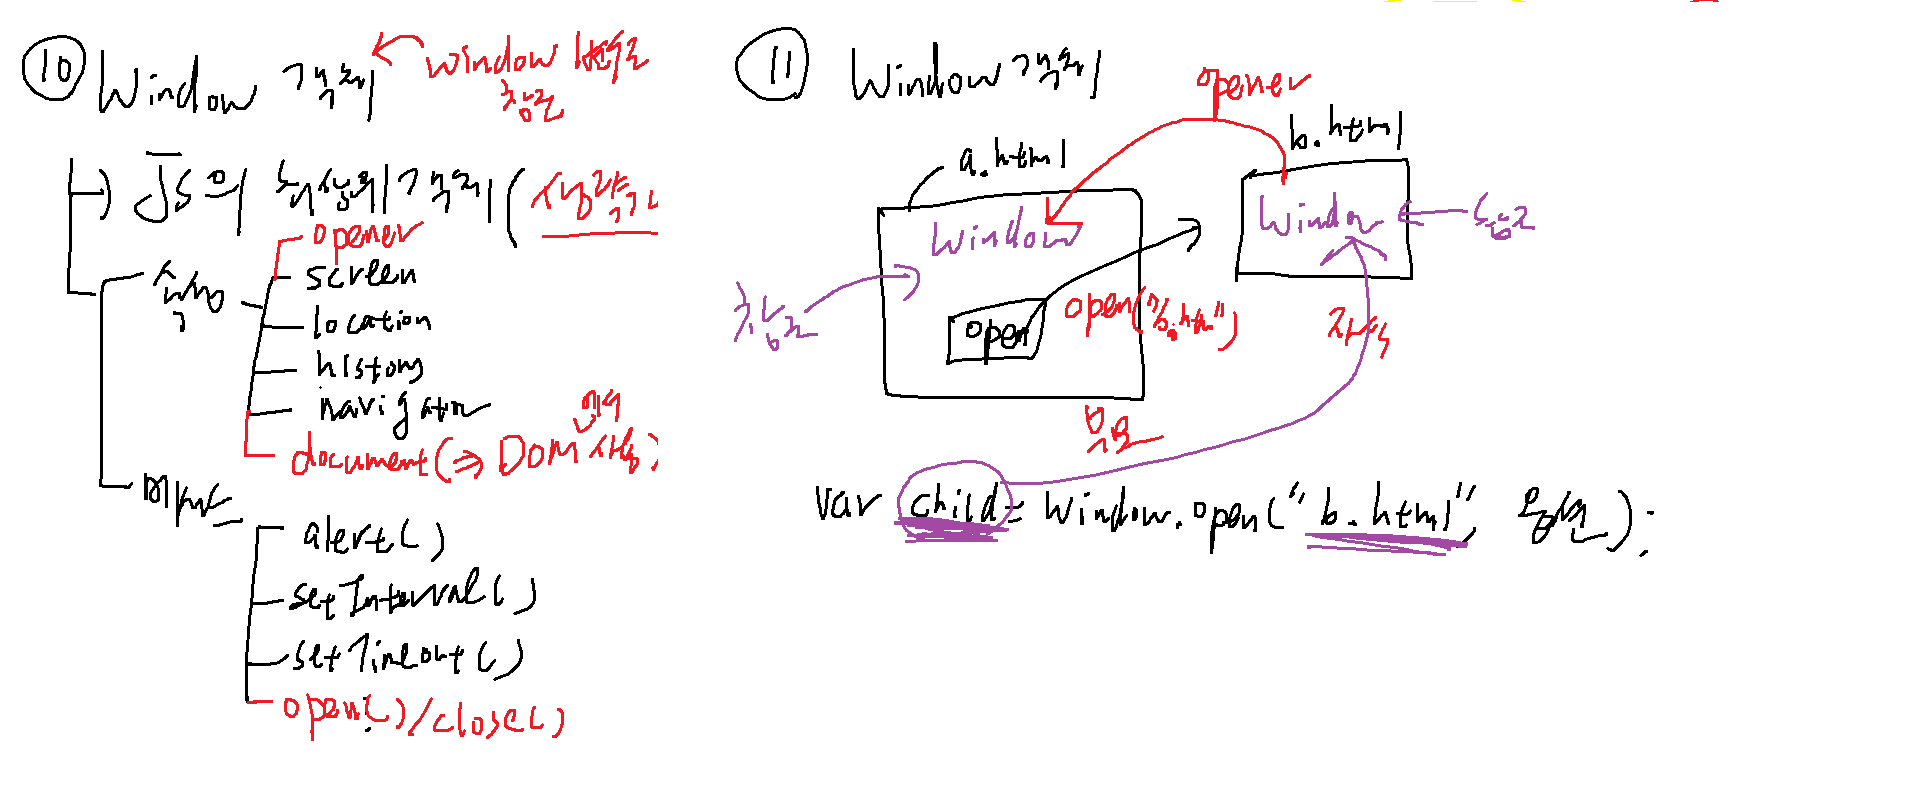 ⑩ Window 객체 ← window 변수로
참조
→ JS의 최상위 객체 (생략가
속성
opener
screen
location
history
navigator
document (⇒ DOM 사용)
메서드
alert()
setInterval()
setTimeout()
open()/close()
⑪ Window 객체
opener
a.html
b.html
Window
Window
참조
open
open("b.html")
자식
부모
var child = Window.open("b.html", 옵션);